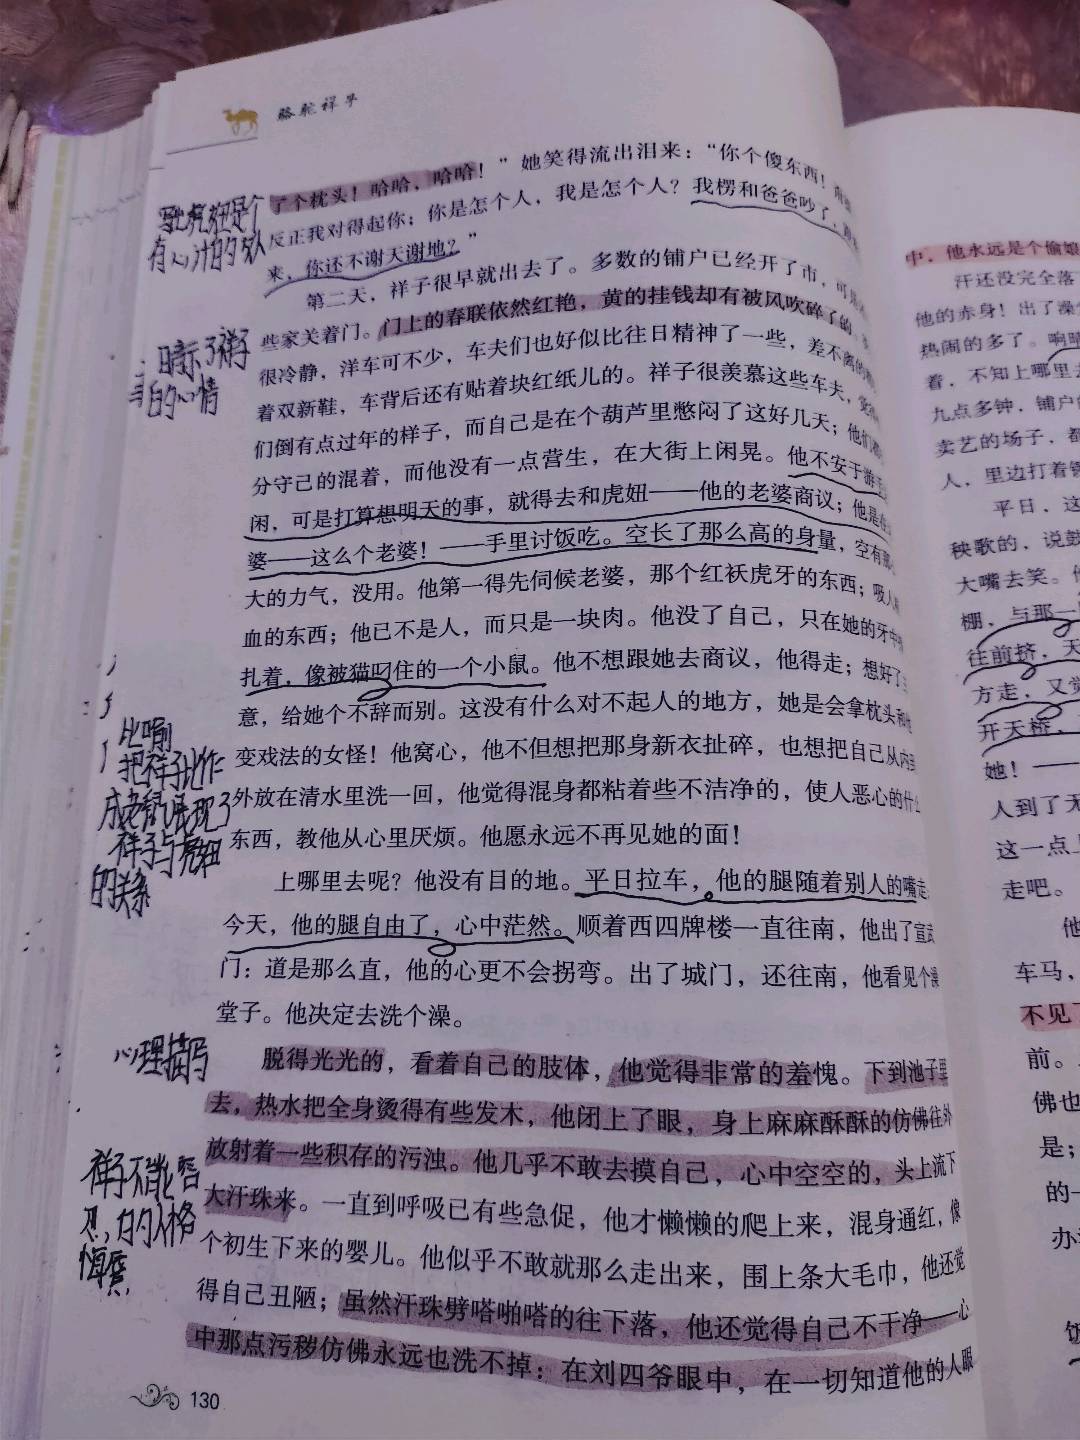 骆驼祥子
了个枕头！哈哈，哈哈！”她笑得流出泪来：“你个傻东西！
反正我对得起你；你是怎个人，我是怎个人？我楞和爸爸吵了，
来，你还不谢天谢地？”
第二天，祥子很早就出去了。多数的铺户已经开了市，可
些家关着门。门上的春联依然红艳，黄的挂钱却有被风吹碎了的
很冷静，洋车可不少，车夫们也好似比往日精神了一些，差不离的
着双新鞋，车背后还有贴着块红纸儿的。祥子很羡慕这些车夫，
们倒有点过年的样子，而自己是在个葫芦里憋闷了这好几天；他们
分守己的混着，而他没有一点营生，在大街上闲晃。他不安于游
闲，可是打算想明天的事，就得去和虎妞——他的老婆商议；他是在
婆——这么个老婆！——手里讨饭吃。空长了那么高的身量，空有那
大的力气，没用。他第一得先伺候老婆，那个红袄虎牙的东西；吸人
血的东西；他已不是人，而只是一块肉。他没了自己，只在她的牙中
扎着，像被猫叼住的一个小鼠。他不想跟她去商议，他得走；想好了
意，给她个不辞而别。这没有什么对不起人的地方，她是会拿枕头和
变戏法的女怪！他窝心，他不但想把那身新衣扯碎，也想把自己从内
外放在清水里洗一回，他觉得混身都粘着些不洁净的，使人恶心的什
东西，教他从心里厌烦。他愿永远不再见她的面！
上哪里去呢？他没有目的地。平日拉车，他的腿随着别人的嘴走，
今天，他的腿自由了，心中茫然。顺着西四牌楼一直往南，他出了宣武
门：道是那么直，他的心更不会拐弯。出了城门，还往南，他看见个澡
堂子。他决定去洗个澡。
脱得光光的，看着自己的肢体，他觉得非常的羞愧。下到池子里
去，热水把全身烫得有些发木，他闭上了眼，身上麻麻酥酥的仿佛往外
放射着一些积存的污浊。他几乎不敢去摸自己，心中空空的，头上流下
大汗珠来。一直到呼吸已有些急促，他才懒懒的爬上来，混身通红，像
个初生下来的婴儿。他似乎不敢就那么走出来，围上条大毛巾，他还觉
得自己丑陋；虽然汗珠劈嗒啪嗒的往下落，他还觉得自己不干净——心
中那点污秽仿佛永远也洗不掉：在刘四爷眼中，在一切知道他的人眼
130
虎妞是个
有心计的女人
暗示了祥子
的心情
比喻
把祥子比作
展现了
祥子与虎妞
的关系
心理描写
祥子不能容
忍，的人格
侮辱
中，他永远是个偷娘
汗还没完全落
他的赤身！出了澡
热闹的多了。响晴
着，不知上哪里去
九点多钟，铺户
卖艺的场子，都
人，里边打着锣
平日，这
秧歌的，说鼓
大嘴去笑。
棚，与那一
往前挤，天
方走，又觉
开天桥，
她！——
人到了无
这一点上
走吧。
他
车马，
不见
前。
佛也
是；
的一
办